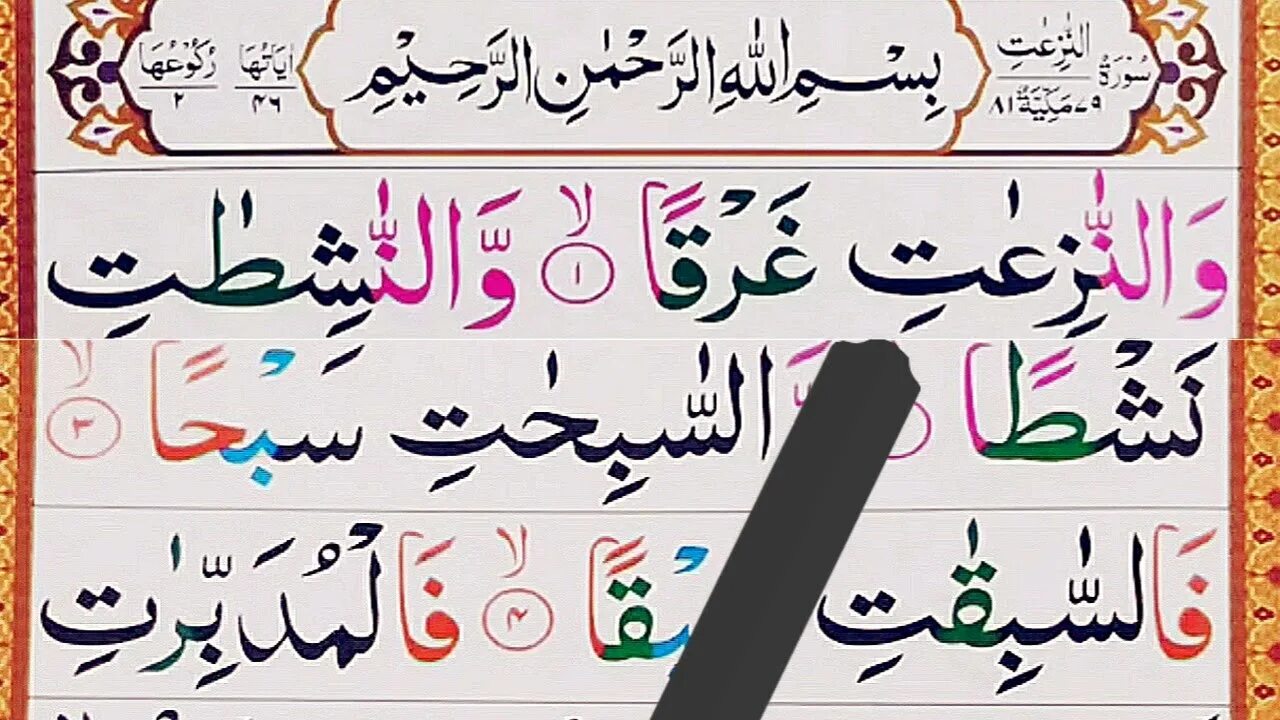 سُوْرَةُ النّٰزِعٰتِ ٧٩ مَكِّيَّةٌ ٨١
بِسْمِ اللهِ الرَّحْمٰنِ الرَّحِيْمِ
اٰيَاتُهَا ٤٦ رُكُوْعُهَا ٢
وَالنّٰزِعٰتِ غَرْقًا ۙ﴿١﴾ وَّالنّٰشِطٰتِ
نَشْطًا السّٰبِحٰتِ سَبْحًا ۙ﴿٣﴾
فَالسّٰبِقٰتِ ۙ﴿۴﴾ فَالْمُدَبِّرٰتِ